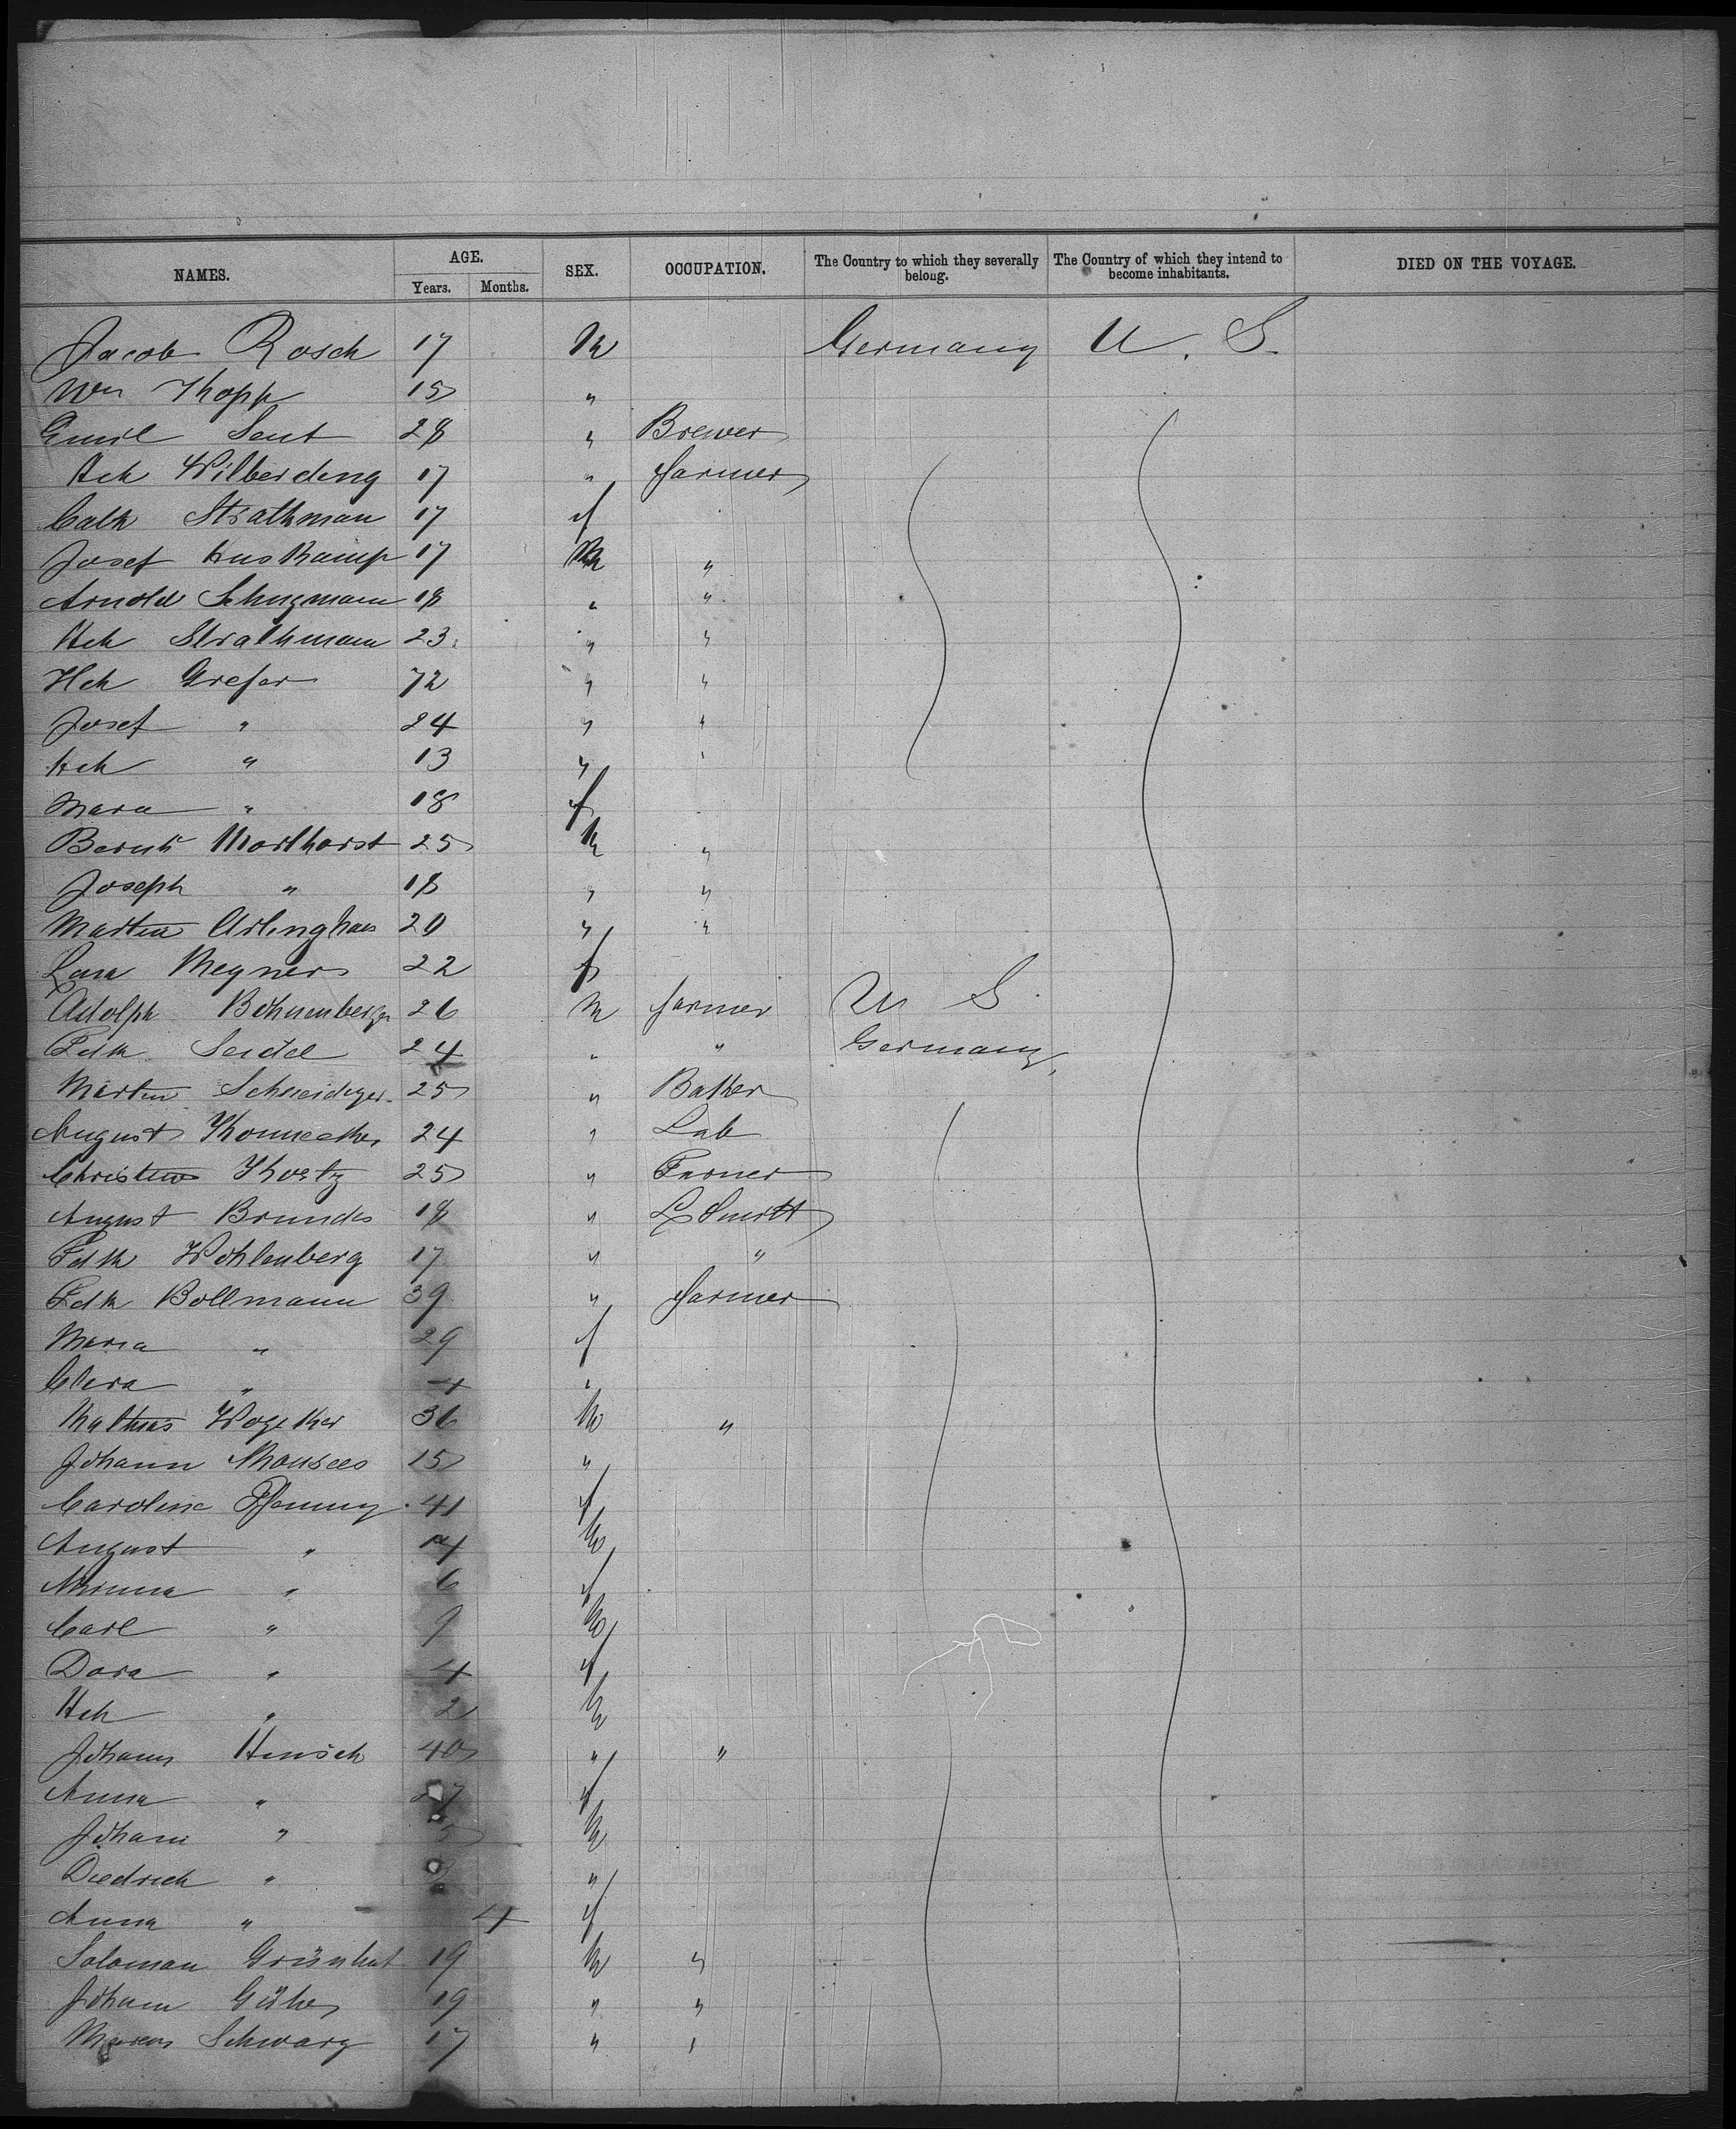 NAMES. AGE. SEX. OCCUPATION. The Country to which they severally belong. The Country of which they intend to become inhabitants. DIED ON THE VOYAGE.
Years. Months.
Jacob Rosch 17 M Germany U. S.
Wm Khopp 15 "
Emil Sent 28 " Brewer
Hch Wilberding 17 " farmer
Cath Strathman 17 f
Josef Kuskamp 17 M "
Arnold 18 " "
Hch Strathmann 23 " "
Hch Grefer 72 " "
Josef " 24 " "
Hch " 13 " "
Mara " 18 f
Bernh Morthorst 25 M "
Joseph " 18 " "
Martin Arlinghaus 20 " "
Lena Meyners 22 f
Adolph Bohnenberger 26 M farmer U S.
Fdk Seidel 24 " " Germany
Martin 25 " Baker
August 24 " Lab
Christian 25 " Farmer
August Brundes 18 " LSmith
Fdk Wohlenberg 17 " "
Fdk Bollmann 39 " farmer
Maria " 29 f
Clera " 4 "
Mathias 36 M "
Johann Monsees 15 "
Caroline Pfenning 41 f
August " M
Minna " 6 f
Carl " 9 M
Dora " 4 f
Hch " 2 M
Johann Hinsch 40 " "
Anna " 27 f
Johann " 5 M
Diedrich " "
Anna " 4 f
Soloman Grünhut 19 M "
Johann 19 " "
Marcus Schwarz 17 " "